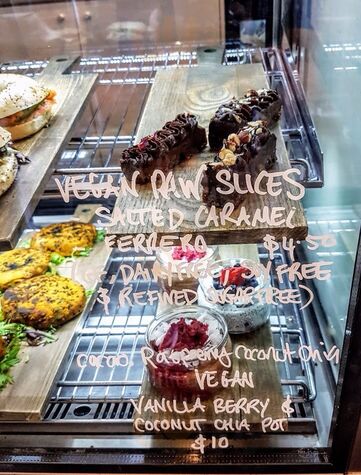 VEGAN RAW SLICES
SALTED CARAMEL
FERRERO $4.50
DAIRY FREE, SOY FREE
& REFINED SUGAR FREE)
Cacao Raspberry Coconut Chia
VEGAN
VANILLA BERRY &
COCONUT CHIA POT
$10